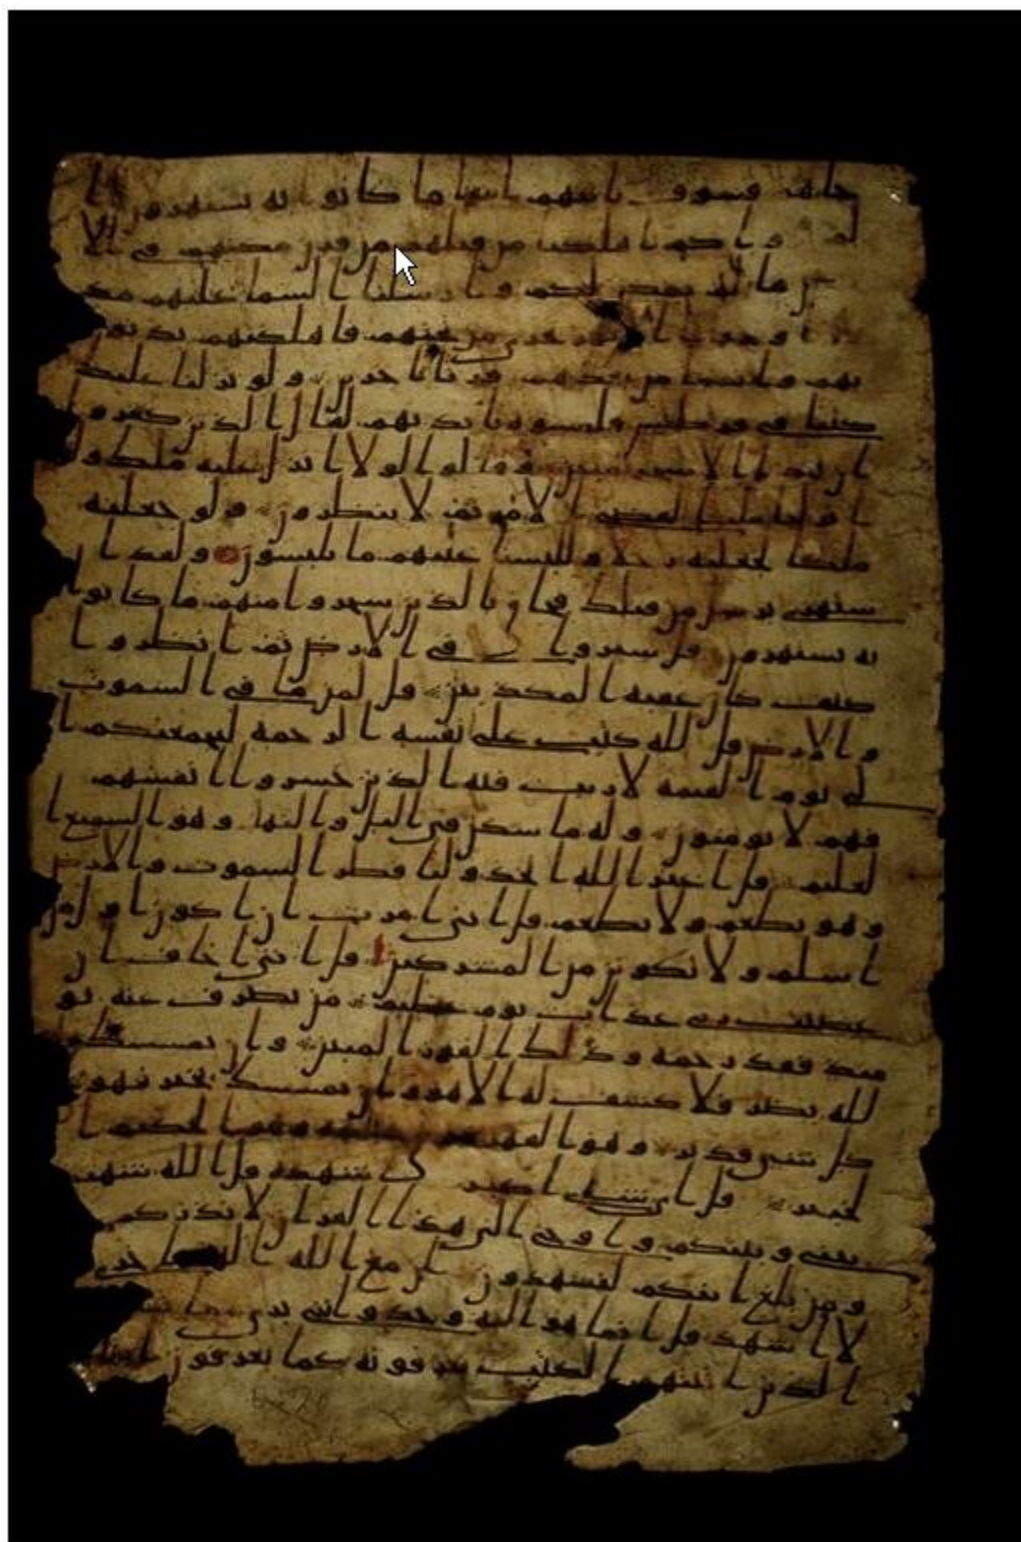 جاهم فسوف ياتيهم انبوا ما كانوا به يستهزون ا
لم يروا كم اهلكنا من قبلهم من قرن مكنهم في الا
رض ما لم نمكن لكم وارسلنا السما عليهم مد
وجعلنا الانهر تجري من تحتهم فاهلكنهم بذنو
بهم وانشانا من بعدهم قرنا اخرين ولو نزلنا عليك
كتبا في قرطس فلمسوه بايديهم لقال الذين كفروا
ان هذا الا سحر مبين وقالوا لولا انزل عليه ملك و
لو انزلنا ملكا لقضي الامر ثم لا ينظرون ولو جعلنه
ملكا لجعلنه رجلا وللبسنا عليهم ما يلبسون ولقد ا
ستهزي برسل من قبلك فحاق بالذين سخروا منهم ما كانوا
به يستهزون قل سيروا في الارض ثم انظروا
كيف كان عقبة المكذبين قل لمن ما في السموت
والارض قل لله كتب على نفسه الرحمة ليجمعنكم ا
لى يوم القيمة لا ريب فيه الذين خسروا انفسهم
فهم لا يومنون وله ما سكن في اليل والنهار وهو السميع ا
لعليم قل اغير الله اتخذ وليا فطر السموت والارض
وهو يطعم ولا يطعم قل اني امرت ان اكون اول من
اسلم ولا تكونن من المشركين قل اني اخاف ان
عصيت ربي عذاب يوم عظيم من يصرف عنه يو
مئذ فقد رحمه وذلك الفوز المبين وان يمسسك ا
لله بضر فلا كشف له الا هو وان يمسسك بخير فهو
كل شي قدير وهو القهر وهو الحكيم ا
لخبير قل اي شي اكبر شهدة قل الله شهيد
بيني وبينكم واوحي الي هذا القران لانذركم
ومن بلغ ائنكم لتشهدون ان مع الله اخرى
لا اشهد قل انما هو اله وحد وانني بري
الذين اتينهم الكتب يعرفونه كما يعرفون